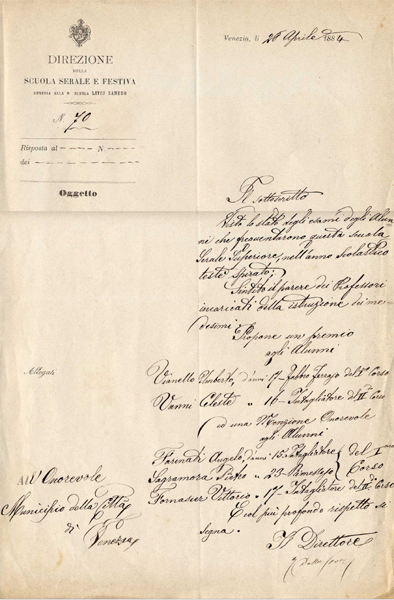 DIREZIONE
DELLA
SCUOLA SERALE E FESTIVA
ANNESSA ALLA R. SCUOLA LIVIO SANUDO
N. 70
Risposta al N
dei
Oggetto
Venezia, li 26 Aprile 1884
Il sottoscritto
Visto lo stato degli esami degli Alun
ni che frequentarono questa scuola
Serale Superiore, nell'anno Scolastico
testè spirato;
Sentito il parere dei Professori
incaricati della istruzione dei me
desimi
Propone un premio
agli Alunni
Allegati
Vianello Umberto, d'anni 17 - fabbro ferrajo del Iº Corso
Vanni Celeste " 16 - Intagliatore del IIº Corso
ed una Menzione Onorevole
agli Alunni
Farinati Angelo, d'anni 15 - Intagliatore
Sagramora Pietro " 23 -
del I
Corso
Fornasier Vittorio " 17 - Intagliatore del IIº Corso
E col più profondo rispetto si
segna.
Il Direttore
All'Onorevole
Municipio della Città
di
Venezia